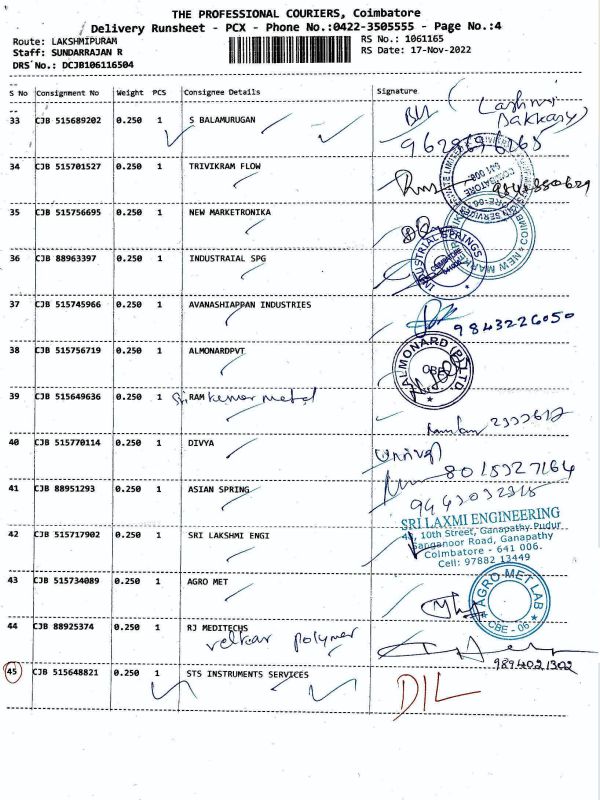 THE PROFESSIONAL COURIERS, Coimbatore
Delivery Runsheet - PCX - Phone No.:0422-3505555 - Page No.:4
Route: LAKSHMIPURAM RS No.: 1061165
Staff: SUNDARRAJAN R RS Date: 17-Nov-2022
DRS No.: DCJB106116504
S No Consignment No Weight PCS Consignee Details Signature
33 CJB 515689202 0.250 1 S BALAMURUGAN
34 CJB 515701527 0.250 1 TRIVIKRAM FLOW
35 CJB 515756695 0.250 1 NEW MARKETRONIKA
36 CJB 88963397 0.250 1 INDUSTRAIAL SPG
INDUSTRIAL SPRINGS
37 CJB 515745966 0.250 1 AVANASHIAPPAN INDUSTRIES
9843226050
38 CJB 515756719 0.250 1 ALMONARDPVT
ALMONARD (P) LTD.
CBE
39 CJB 515649636 0.250 1 Sri RAM kumar metal
40 CJB 515770114 0.250 1 DIVYA
8015327164
41 CJB 88951293 0.250 1 ASIAN SPRING
42 CJB 515717902 0.250 1 SRI LAKSHMI ENGI
SRI LAXMI ENGINEERING
10th Street, Ganapathy Pudur
Sanganoor Road, Ganapathy
Coimbatore - 641 006.
Cell: 97882 13449
43 CJB 515734089 0.250 1 AGRO MET
AGRO MET LAB
CBE - 06
44 CJB 88925374 0.250 1 RJ MEDITECHS
polymer
9894021302
45 CJB 515648821 0.250 1 STS INSTRUMENTS SERVICES
DIL